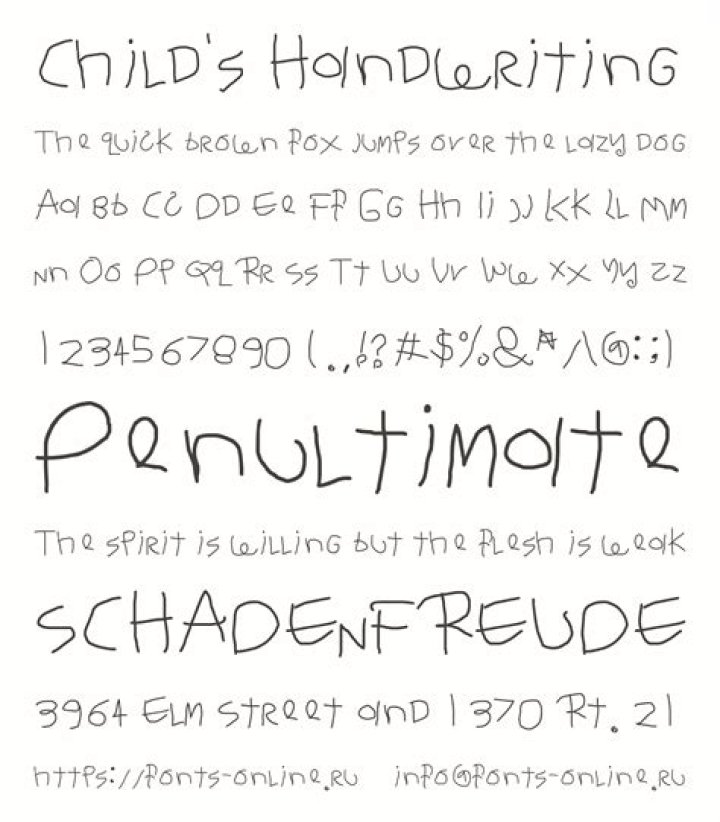 Child's Handwriting
The quick brown fox jumps over the lazy dog
Aa Bb Cc Dd Ee Ff Gg Hh Ii Jj Kk Ll Mm
Nn Oo Pp Qq Rr Ss Tt Uu Vv Ww Xx Yy Zz
1234567890 (.,!?#$%&*/\@:;)
Penultimate
The spirit is willing but the flesh is weak
SCHADENFREUDE
3964 Elm Street and 1370 Rt. 21
https://fonts-online.ru info@fonts-online.ru